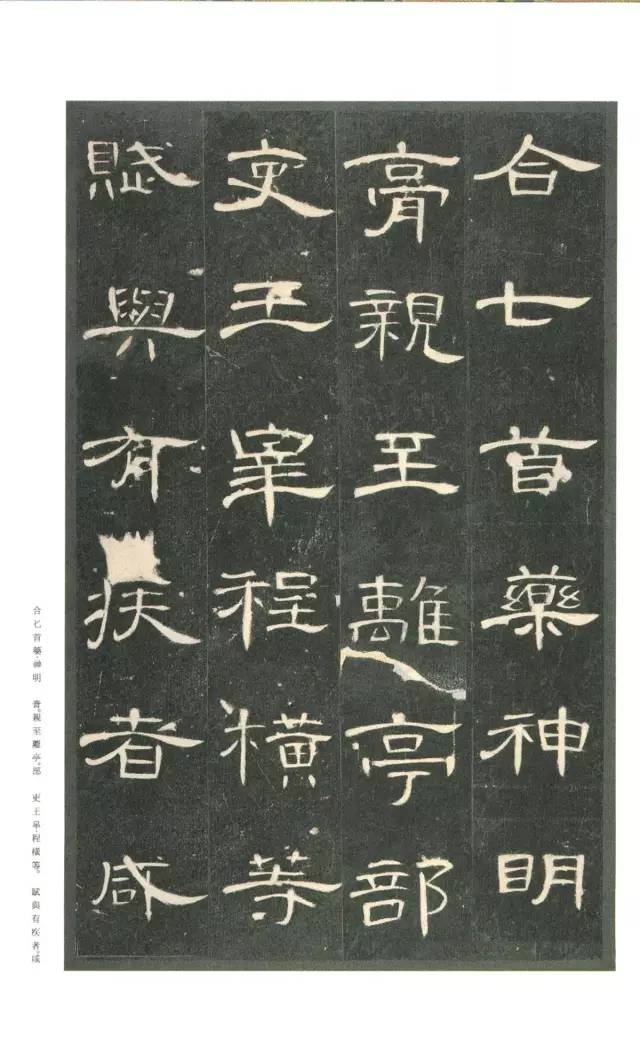 合七首藥神明
膏親至離亭部
吏王皐程橫等
賦與有疾者咸
合七首藥·神明　膏。親至離亭。部　吏王皐·程橫等。　賦與有疾者。咸